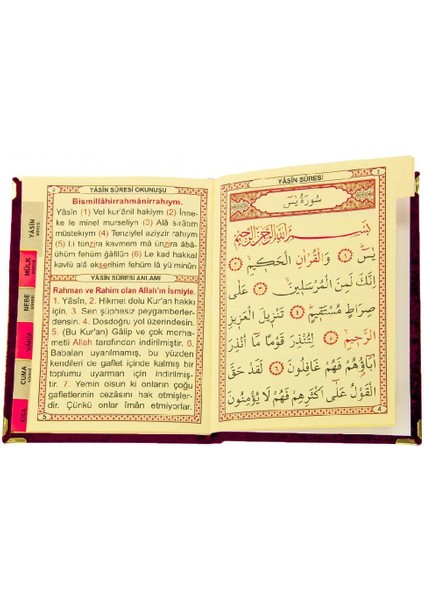 YÂSİN SÛRESİ OKUNUŞU
Bismillâhirrahmânirrahıym.
Yâsîn (1) Vel kur'ânil hakiym (2) İnne-
ke le minel murseliyn (3) Alâ sırâtım
müstekıym (4) Tenziylel aziyzir rahıym
(5) Li tunzira kavmem mâ ünzira âbâ-
ühüm fehüm ğâfilûn (6) Le kad hakkal
kavlü alâ ekserihim fehüm lâ yü'minûn
YÂSÎN SÛRESİ ANLAMI
Rahman ve Rahim olan Allah'ın İsmiyle.
1. Yâsîn, 2. Hikmet dolu Kur'an hakkı
için, 3. Sen şüphesiz peygamberler-
densin. 4. Dosdoğru yol üzerindesin.
5. (Bu Kur'an) Gâlip ve çok merha-
metli Allah tarafından indirilmiştir. 6.
Babaları uyarılmamış, bu yüzden
kendileri de gaflet içinde kalmış bir
toplumu uyarman için indirilmiş-
tir. 7. Yemin olsun ki onların çoğu
gafletlerinin cezasını hak etmişler-
dir. Çünkü onlar îmân etmiyorlar.
5
YÂSİN
MÜLK
NEBE
CUMA
YÂSÎN SÛRESİ
سُورَةُ يٰسٓ
بِسْمِ اللهِ الرَّحْمٰنِ الرَّحِيمِ
يٰسٓ ﴿١﴾ وَالْقُرْاٰنِ الْحَكِيمِ ﴿٢﴾
اِنَّكَ لَمِنَ الْمُرْسَلِينَ ﴿٣﴾ عَلٰى
صِرَاطٍ مُسْتَقِيمٍ ﴿٤﴾ تَنْزِيلَ الْعَزِيزِ
الرَّحِيمِ ﴿٥﴾ لِتُنْذِرَ قَوْمًا مَٓا اُنْذِرَ
اٰبَٓاؤُ۬هُمْ فَهُمْ غَافِلُونَ ﴿٦﴾ لَقَدْ حَقَّ
الْقَوْلُ عَلٰٓى اَكْثَرِهِمْ فَهُمْ لَا يُؤْمِنُونَ
4